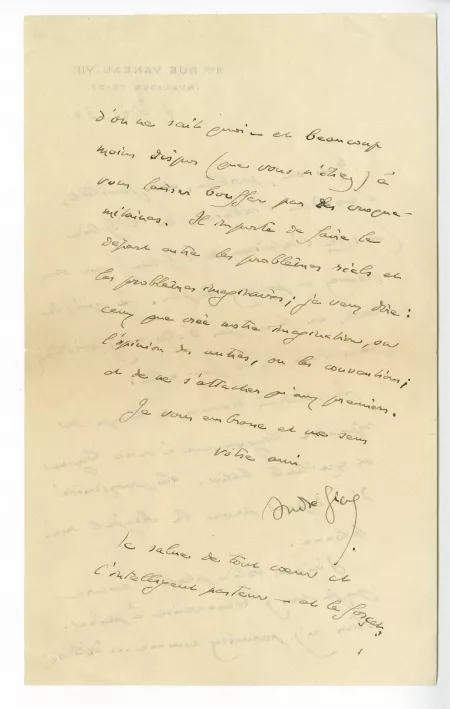 d'on ne sait quoi – et beaucoup
moins dispos (que vous n'étiez) à
vous laisser bouffer par des croque-
mitaines. Il importe de faire le
départ entre les problèmes réels et
les problèmes imaginaires; je veux dire:
ceux que crée notre imagination, ou
l'opinion des autres, ou les conventions;
et de ne s'attacher qu'aux premiers.
Je vous embrasse et me sens
votre ami
André Gide.
Je salue de tout cœur et
l'intelligent pasteur – et la